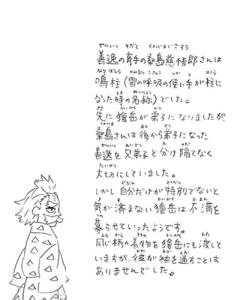 善逸の育手の桑島慈悟郎さんは
鳴柱（雷の呼吸の使い手が柱に
なった時の名称）でした。
先に獪岳が弟子になりましたが
桑島さんは後から弟子になった
善逸を兄弟子と分け隔てなく
大切にしていました。
しかし自分だけが特別でないと
気が済まない獪岳は不満を
募らせていったようです。
同じ柄の着物を獪岳にも渡して
いますが、彼が袖を通すことは
ありませんでした。